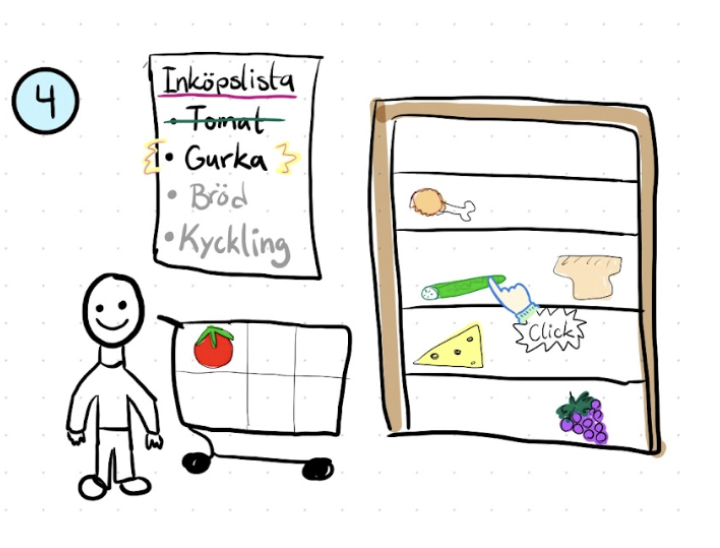 4
Inköpslista
• Tomat
• Gurka
• Bröd
• Kyckling
Click